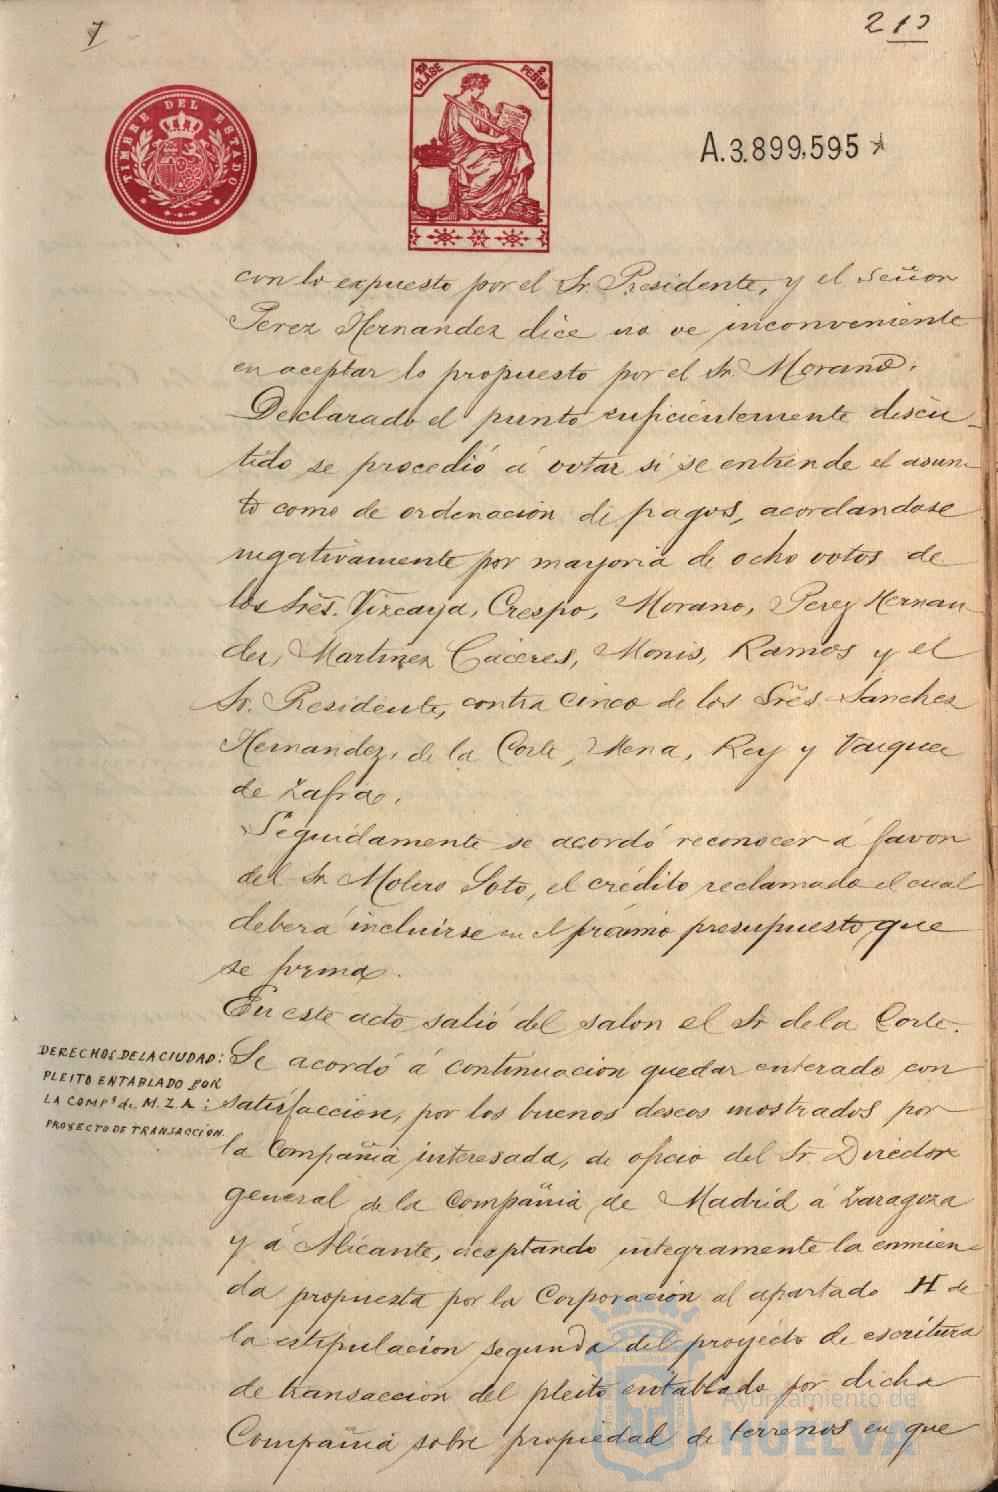 7
TIMBRE DEL ESTADO
10ª CLASE
2 PESTAS
A.3.899,595
con lo expuesto por el Sr. Presidente, y el señor
Perez Hernandez dice no ve inconveniente
en aceptar lo propuesto por el Sr. Morano.
Declarado el punto suficientemente discu-
tido se procedió á votar si se entiende el asun-
to como de ordenación de pagos, acordandose
negativamente por mayoria de ocho votos de
los Srēs. Vizcaya, Crespo, Morano, Perez Hernan
dez, Martinez Caceres, Monis, Ramos y el
Sr. Presidente, contra cinco de los Srēs Sanchez
Hernandez, de la Corte, Mena, Rey y Vazquez
de Zafra.
Seguidamente se acordó reconocer á favor
del Sr. Molero Soto, el crédito reclamado el cual
deberá incluirse en el próximo presupuesto que
se forma.
En este acto salió del salon el Sr de la Corte.
DERECHOS DE LA CIUDAD:
PLEITO ENTABLADO POR
LA COMPª de M.Z.A:
PROYECTO DE TRANSACCIÓN.
Se acordó á continuacion quedar enterado con
satisfaccion, por los buenos deseos mostrados por
la Compañia interesada, de oficio del Sr. Director
general de la Compañia de Madrid á Zaragoza
y á Alicante, aceptando integramente la enmien-
da propuesta por la Corporación al apartado H de
la estipulacion segunda del proyecto de escritura
de transaccion del pleito entablado por dicha
Compañia sobre propiedad de terrenos en que
Ayuntamiento de
HUELVA